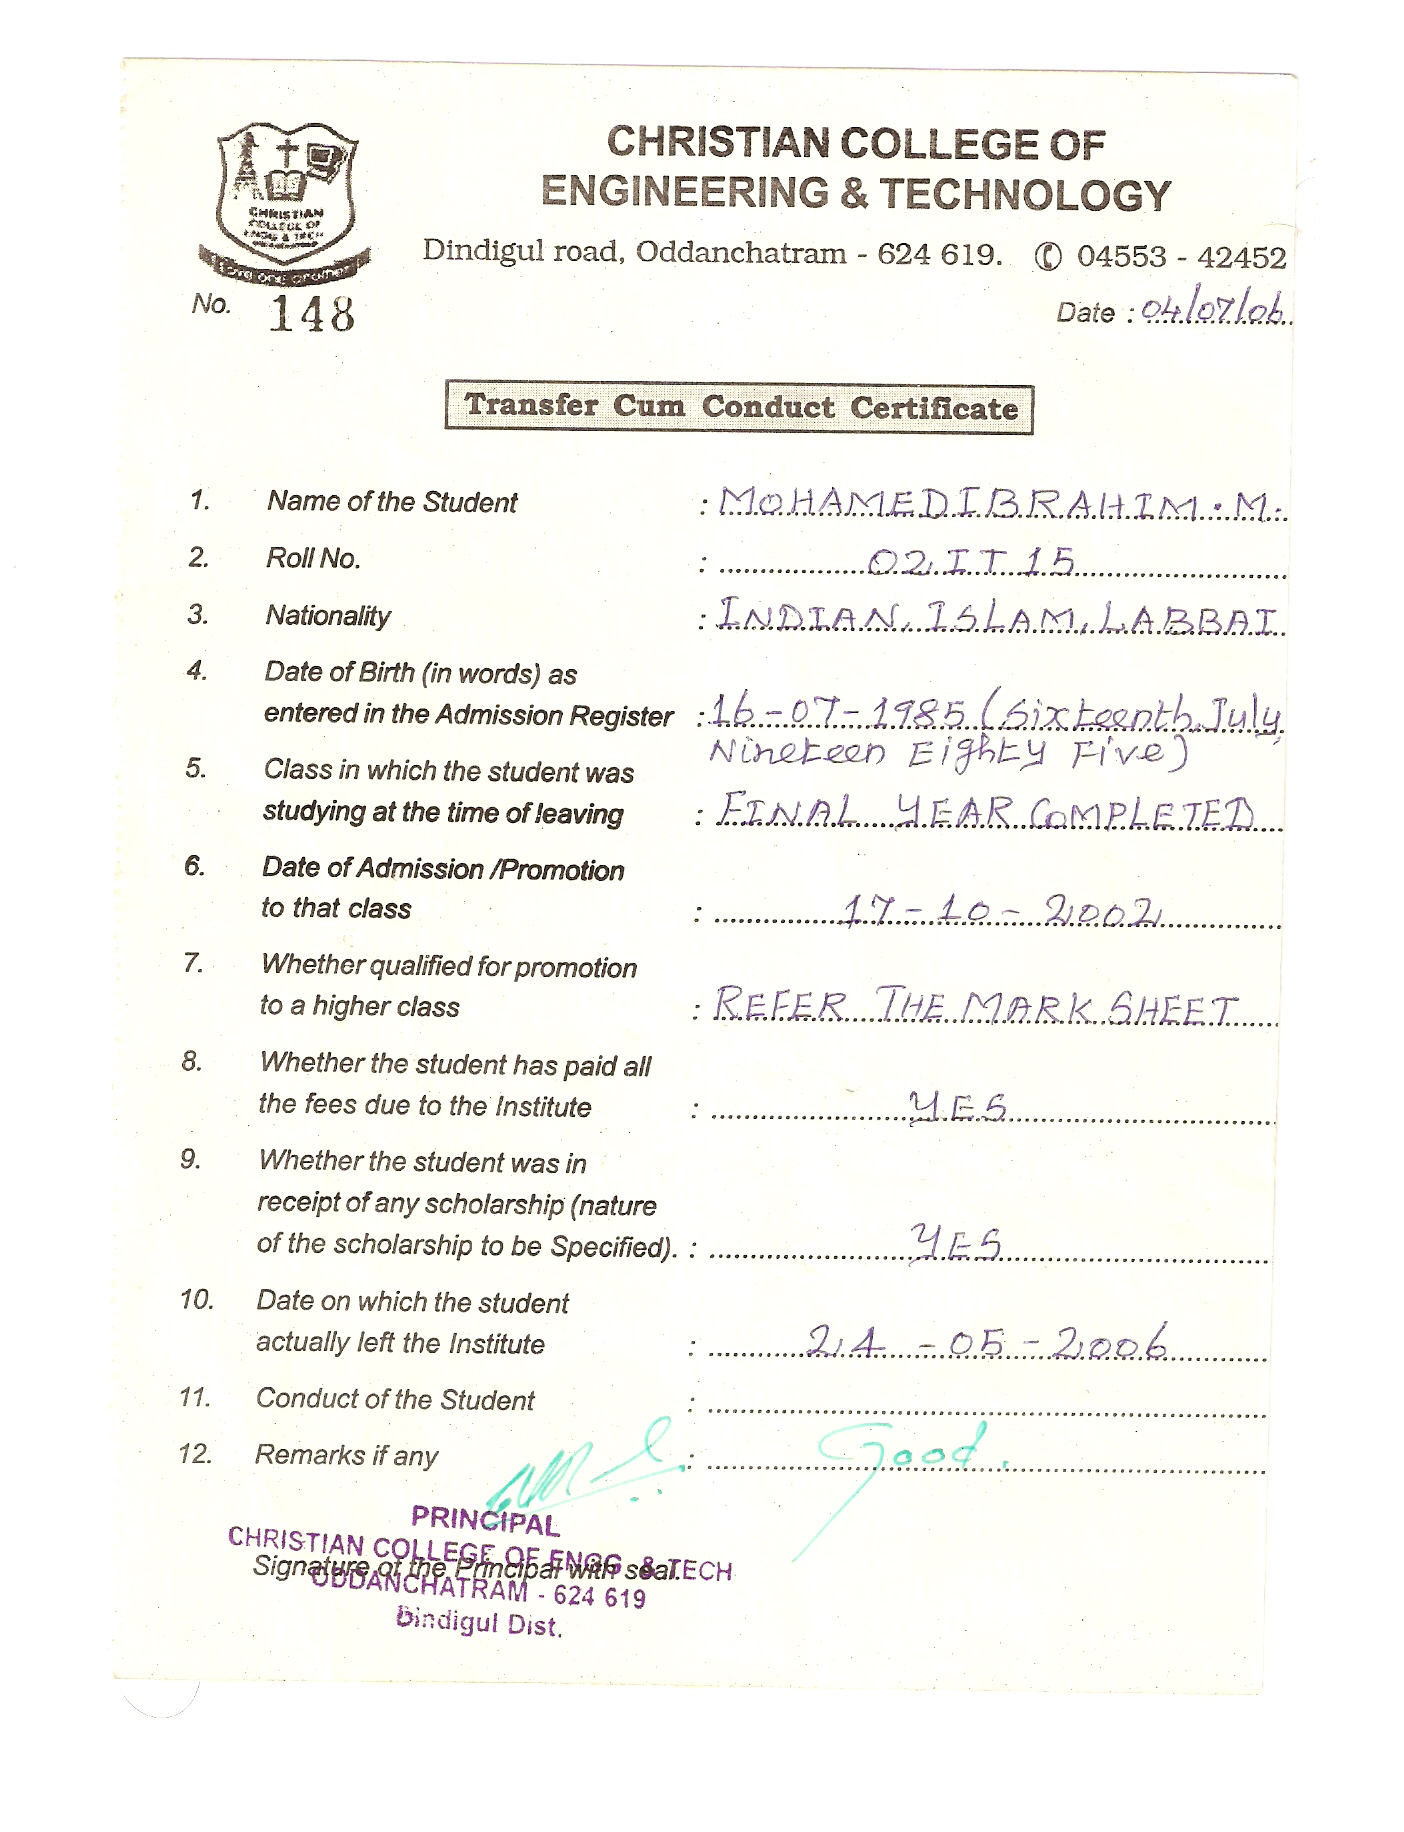 CHRISTIAN
COLLEGE OF
ENGG & TECH
CHRISTIAN COLLEGE OF
ENGINEERING & TECHNOLOGY
Dindigul road, Oddanchatram - 624 619. ✆ 04553 - 42452
No. 148
Date : 04/07/06
Transfer Cum Conduct Certificate
1. Name of the Student : MOHAMED IBRAHIM . M.
2. Roll No. : 02 IT 15
3. Nationality : INDIAN, ISLAM, LABBAI
4. Date of Birth (in words) as
entered in the Admission Register : 16-07-1985 (Sixteenth July
Nineteen Eighty Five)
5. Class in which the student was
studying at the time of leaving : FINAL YEAR COMPLETED
6. Date of Admission /Promotion
to that class : 17-10-2002
7. Whether qualified for promotion
to a higher class : REFER THE MARK SHEET
8. Whether the student has paid all
the fees due to the Institute : YES
9. Whether the student was in
receipt of any scholarship (nature
of the scholarship to be Specified). : YES
10. Date on which the student
actually left the Institute : 24-05-2006
11. Conduct of the Student :
12. Remarks if any : Good.
PRINCIPAL
CHRISTIAN COLLEGE OF ENGG. & TECH
Signature of the Principal with seal.
ODDANCHATRAM - 624 619
Dindigul Dist.